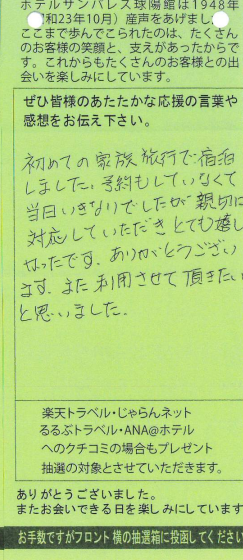 ホテルサンパレス球陽館は1948年
和23年10月）産声をあげまし
ここまで歩んでこられたのは、たくさん
のお客様の笑顔と、支えがあったからで
す。これからもたくさんのお客様との出
会いを楽しみにしています。
ぜひ皆様のあたたかな応援の言葉や
感想をお伝え下さい。
初めての家族旅行で宿泊
しました。予約もしていなくて
当日いきなりでしたが親切に
対応していただきとても嬉し
かったです。ありがとうござい
ます。また利用させて頂きたい
と思いました。
楽天トラベル・じゃらんネット
るるぶトラベル・ANA@ホテル
へのクチコミの場合もプレゼント
抽選の対象とさせていただきます。
ありがとうございました。
またお会いできる日を楽しみにしています
お手数ですがフロント横の抽選箱に投函してくださ